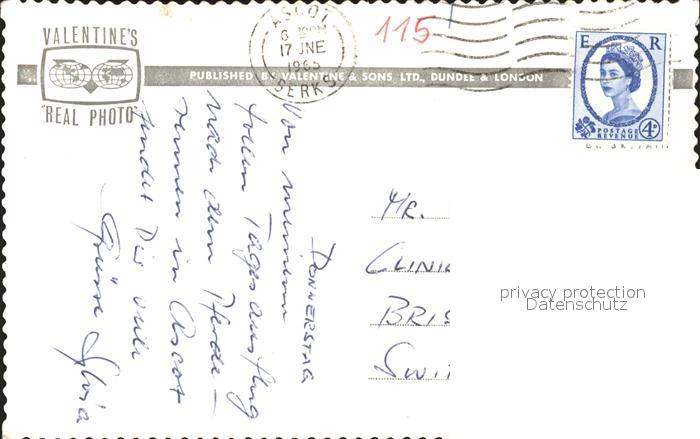 VALENTINE'S
"REAL PHOTO"
PUBLISHED BY VALENTINE & SONS LTD., DUNDEE & LONDON
ASCOT
17 JNE
1965
BERKS
115
E R
POSTAGE
REVENUE
4D
DONNERSTAG
Von meinem
tollen Tagesausflug
nach dem Pferde-
rennen in Ascot
sendet Dir viele
Grüsse
MR.
CLINI
BRIS
SWI
privacy protection
Datenschutz